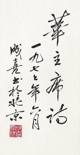 華主席詩
一九七七年八月
成喜書於北京